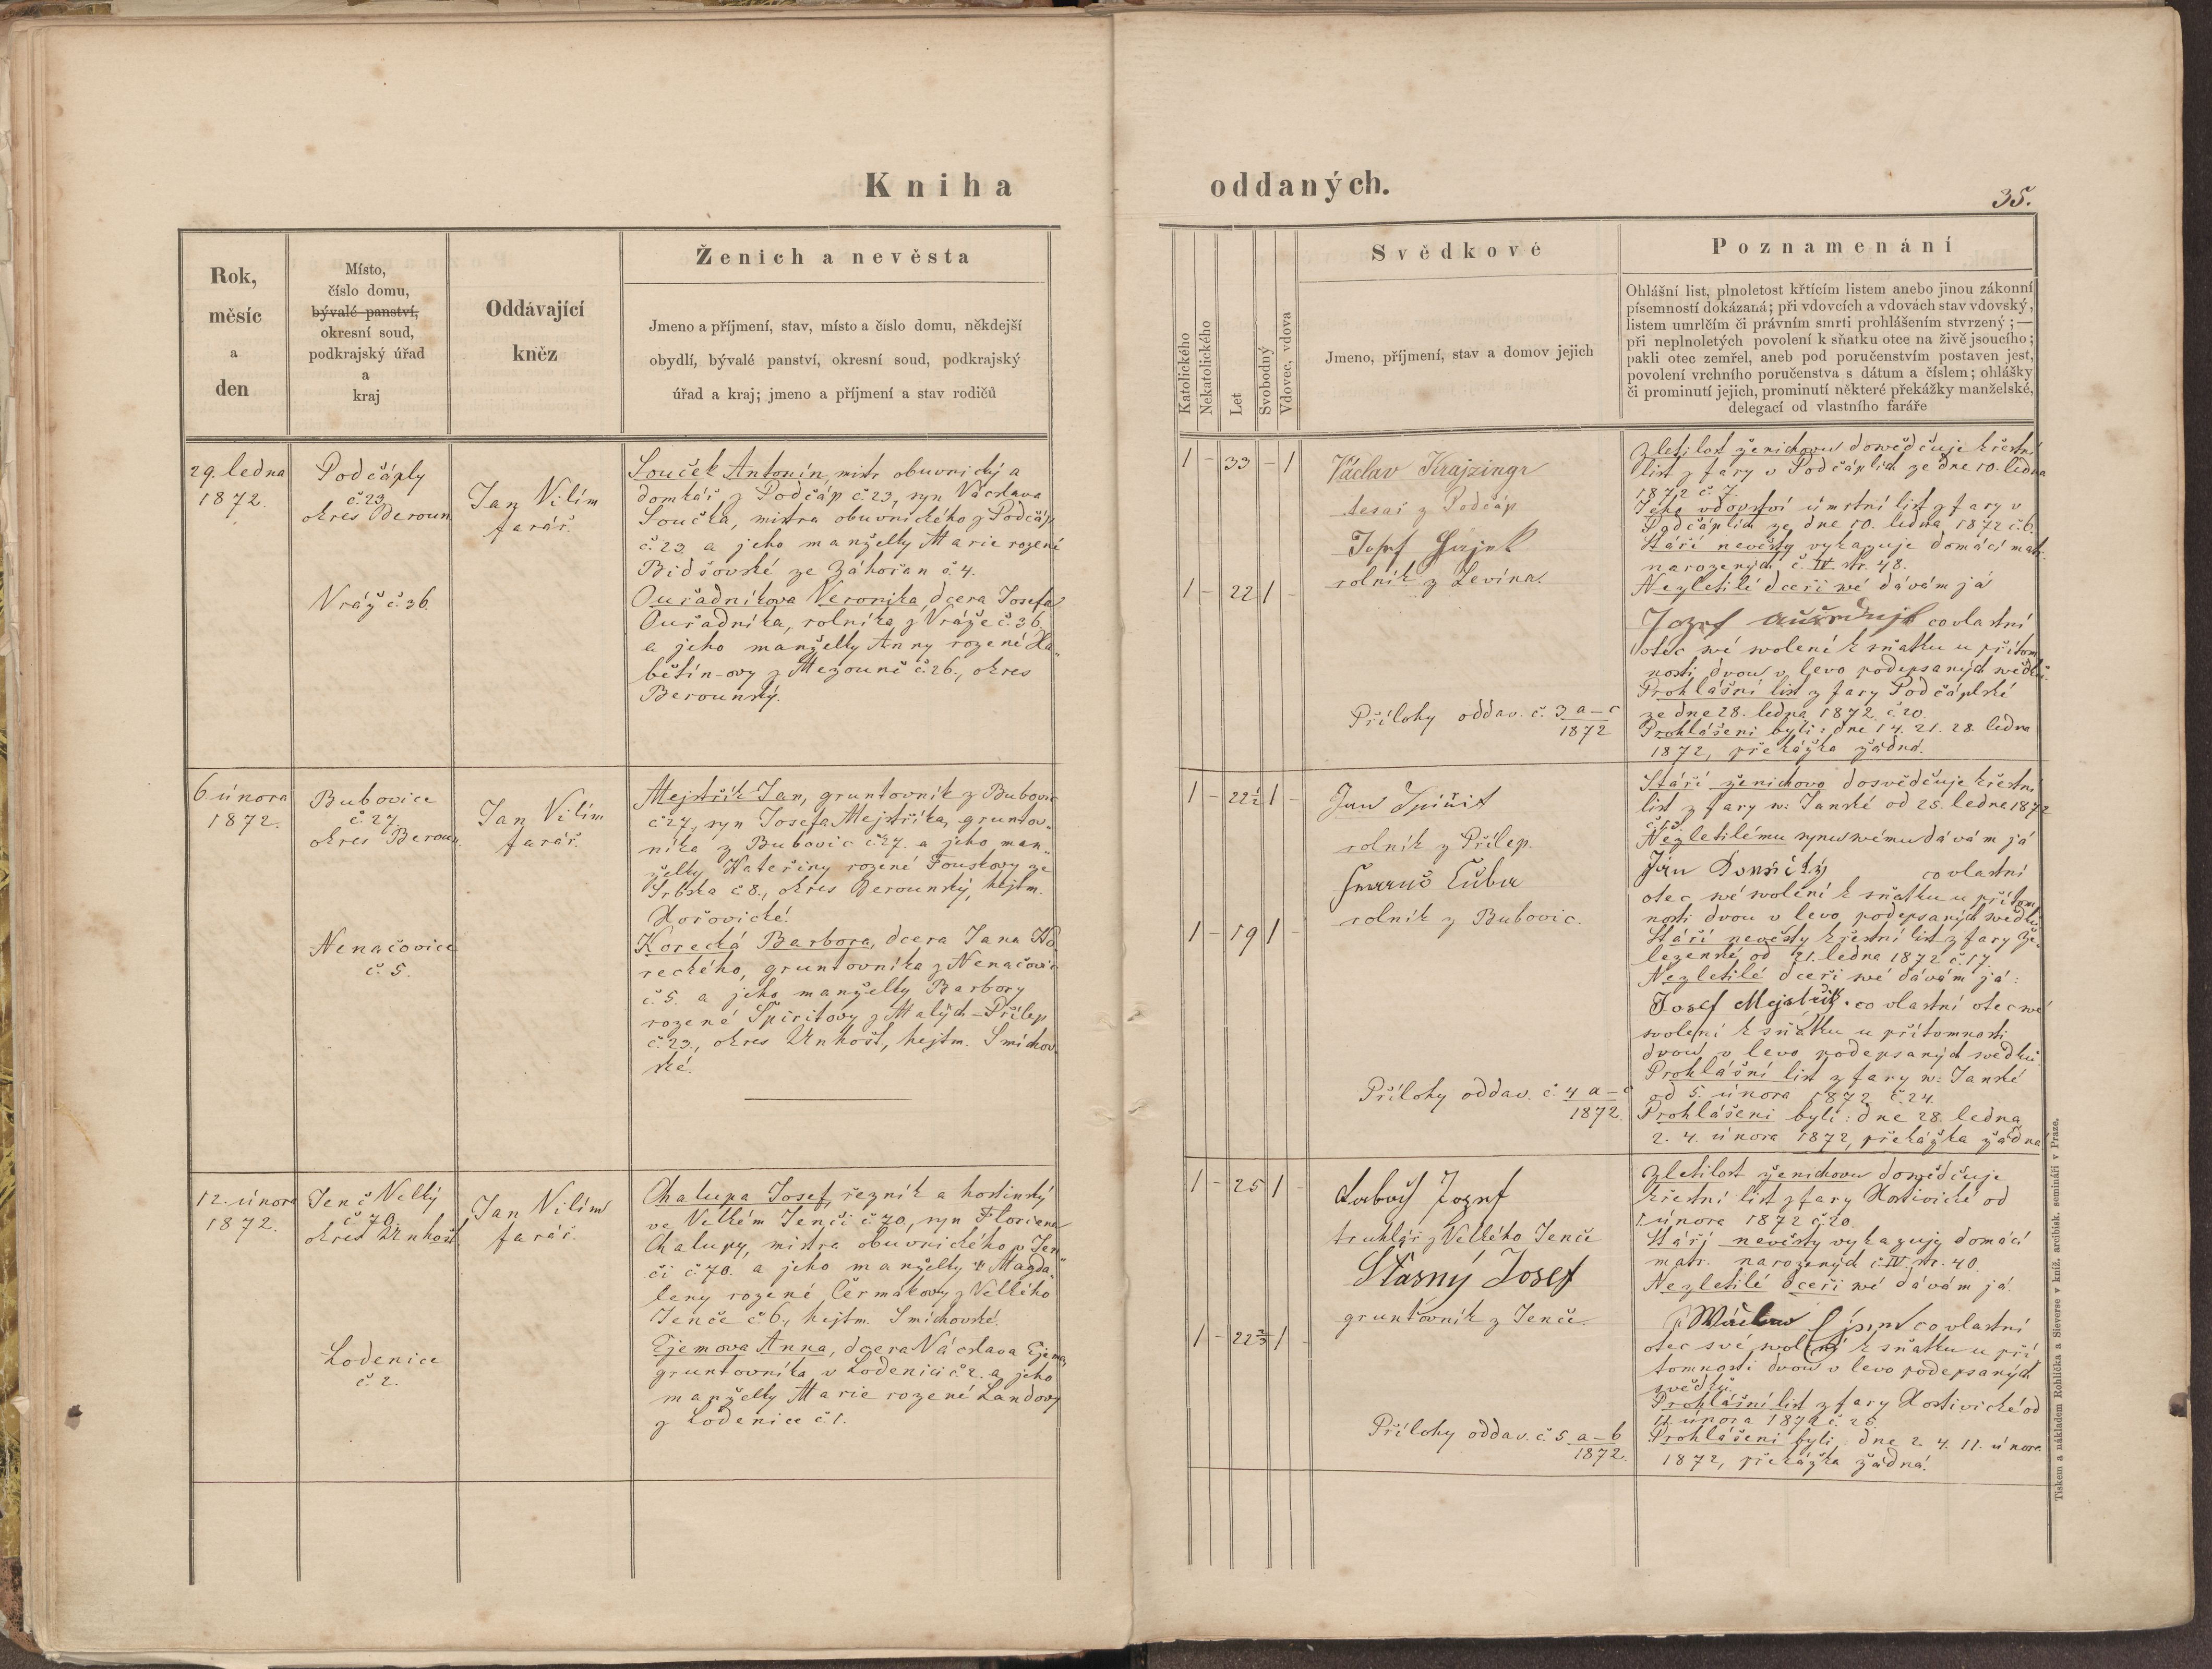 Kniha
oddaných.
35.
Rok,
měsíc
a
den
Místo,
číslo domu,
bývalé panství,
okresní soud,
podkrajský úřad
a
kraj
Oddávající
kněz
Ženich a nevěsta
Jmeno a příjmení, stav, místo a číslo domu, někdejší
obydlí, bývalé panství, okresní soud, podkrajský
úřad a kraj; jmeno a příjmení a stav rodičů
Katolického
Nekatolického
Let
Svobodný
Vdovec, vdova
Svědkové
Jmeno, příjmení, stav a domov jejich
Poznamenání
Ohlášní list, plnoletost křtícím listem anebo jinou zákonní
písemností dokázaná; při vdovcích a vdovách stav vdovský,
listem umrlčím či právním smrti prohlášením stvrzený; —
při neplnoletých povolení k sňatku otce na živě jsoucího;
pakli otec zemřel, aneb pod poručenstvím postaven jest,
povolení vrchního poručenstva s dátum a číslem; ohlášky
či prominutí jejich, prominutí některé překážky manželské,
delegací od vlastního faráře
29. ledna
1872.
Podčáply
č. 23
okres Beroun
Vráž č. 36.
Jan Vilím
farář.
Souček Antonín, mistr obuvnický a
domkář z Podčáp č. 23, syn Václava
Součka, mistra obuvnického z Podčáp
č. 23 a jeho manželky Marie rozené
Bidšovské ze Záhořan č. 4.
Ouřadníkova Veronika, dcera Josefa
Ouřadníka, rolníka z Vráže č. 36,
a jeho manželky Anny rozené Ha-
bětín-ovy z Mezouně č. 26., okres
Berounský.
1 - 33 - 1
1 - 22 1 -
Václav Krajzingr
tesař z Podčáp
Josef Hájek
rolník z Levína.
Přílohy oddav. č. 3 a–c
1872
Zletilost ženichovu dosvědčuje křestní
list z fary v Podčáplích ze dne 10. ledna
1872 č. 7.
Jeho vdovství úmrtní list z fary v
Podčáplích ze dne 10. ledna 1872 č. 6.
Stáří nevěsty vykazuje domácí matr.
narozených č. IV. str. 48.
Nezletilé dceři své dávám já
Jozef co vlastní
otec své svolení k sňatku u přítom
nosti dvou v levo podepsaných svědků.
Prohlášní list z fary Podčáplské
ze dne 28. ledna 1872. č. 20.
Prohlášeni byli: dne 14. 21. 28. ledna
1872, překážka žádná.
6. února
1872.
Bubovice
č. 27
okres Beroun.
Nenačovice
č. 5.
Jan Vilím
farář.
Mejstřík Jan, gruntovník z Bubovic
č. 27, syn Josefa Mejstříka, gruntov-
níka z Bubovic č. 27. a jeho man-
želky Kateřiny rozené Fouskovy ze
Srbska č. 8., okres Berounský, hejtm.
Hořovické.
Korecká Barbora, dcera Jana Ko
reckého, gruntovníka z Nenačovic
č. 5. a jeho manželky Barbory
rozené Špiritovy z Malých-Přílep
č. 23., okres Unhošt, hejtm. Smíchov-
ské.
1 - 22½ 1 -
1 - 19 1 -
Jan Spiřit
rolník z Přílep.
rolník z Bubovic.
Přílohy oddav. č. 4 a–c
1872.
Stáří ženichovo dosvědčuje křestní
list z fary sv: Janské od 25. ledna 1872
č. 13.
Nezletilému synu svému dávám já
Jan co vlastní
otec své svolení k sňatku u přítom
nosti dvou v levo podepsaných svědků.
Stáří nevěsty křestní list z fary Že-
lezenské od 21. ledna 1872 č. 17.
Nezletilé dceři své dávám já:
Josef Mejstřík. co vlastní otec své
svolení k sňatku u přítomnosti
dvou v levo podepsaných svědků.
Prohlášní list z fary sv: Janské
od 5. února 1872 č. 24.
Prohlášeni byli: dne 28. ledna
2. 4. února 1872, překážka žádná
12. února
1872.
Jenč Velký
č. 70.
okres Unhošt.
Lodenice
č. 2.
Jan Vilím
farář.
Chalupa Josef, řezník a hostinský
ve Velkém Jenči č. 70., syn Floriana
Chalupy, mistra obuvnického v Jen-
či č. 70. a jeho manželky † Magda-
leny rozené Čermákovy z Velkého
Jenče č. 6., hejtm. Smíchovské.
Ejemova Anna, dcera Václava Ejema,
gruntovníka v Lodenici č. 2. a jeho
manželky Marie rozené Landovy
z Lodenice č. 1.
1 - 25 1 -
1 - 22 1 -
Jozef
truhlář z Velkého Jenče
Stasný Josef
gruntovník z Jenče
Přílohy oddav. č. 5 a–b
1872.
Zletilost ženichovu dosvědčuje
křestní list z fary Hostivické od
1. února 1872 č. 20.
Stáří nevěsty vykazuje domácí
matr. narozených č. IV. str. 40.
Nezletilé dceři své dávám já.
co vlastní
otec své svolení k sňatku u pří
tomnosti dvou v levo podepsaných
svědků.
Prohlášní list z fary Hostivické od
11. února 1872 č. 26.
Prohlášeni byli: dne 2. 4. 11. února
1872, překážka žádná.
Tiskem a nákladem Rohlíčka a Sieverse v kníž. arcibisk. semináři v Praze.